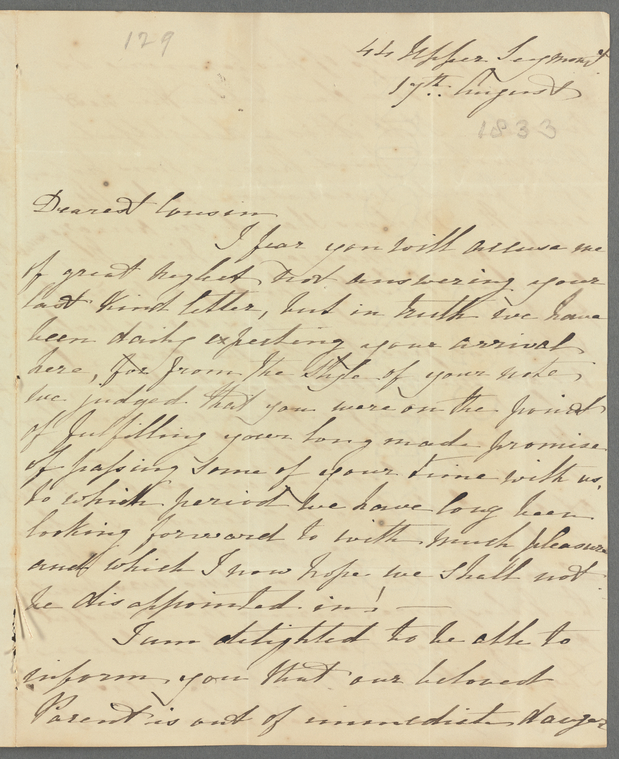 129
44 Upper Seymour St
17th. August
1833
Dearest Cousin
I fear you will accuse me
of great neglect not answering your
last kind letter, but in truth we have
been daily expecting your arrival
here, for from the style of your note
we judged that you were on the point
of fulfilling your long made promise
of passing some of your time with us,
to which period we have long been
looking forward to with much pleasure
and which I now hope we shall not
be disappointed in! —
I am delighted to be able to
inform you that our beloved
Parent is out of immediate danger